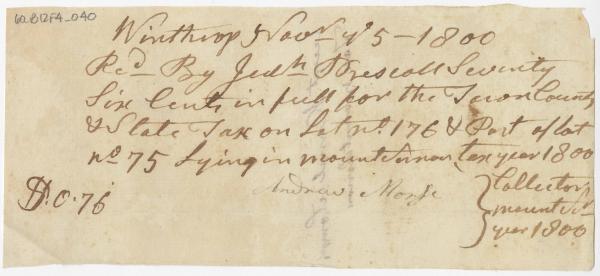 60.B12F4_040
Winthrop Novr ye 5 - 1800
Recd By Jedh Prescott Seventy
Six Cents in full for the Town County
& State Tax on Lot no 176 & Part of lot
no 75 Lying in mountvernon tax year 1800
Andrew Morse
Collector
mount
year 1800
D.0.76